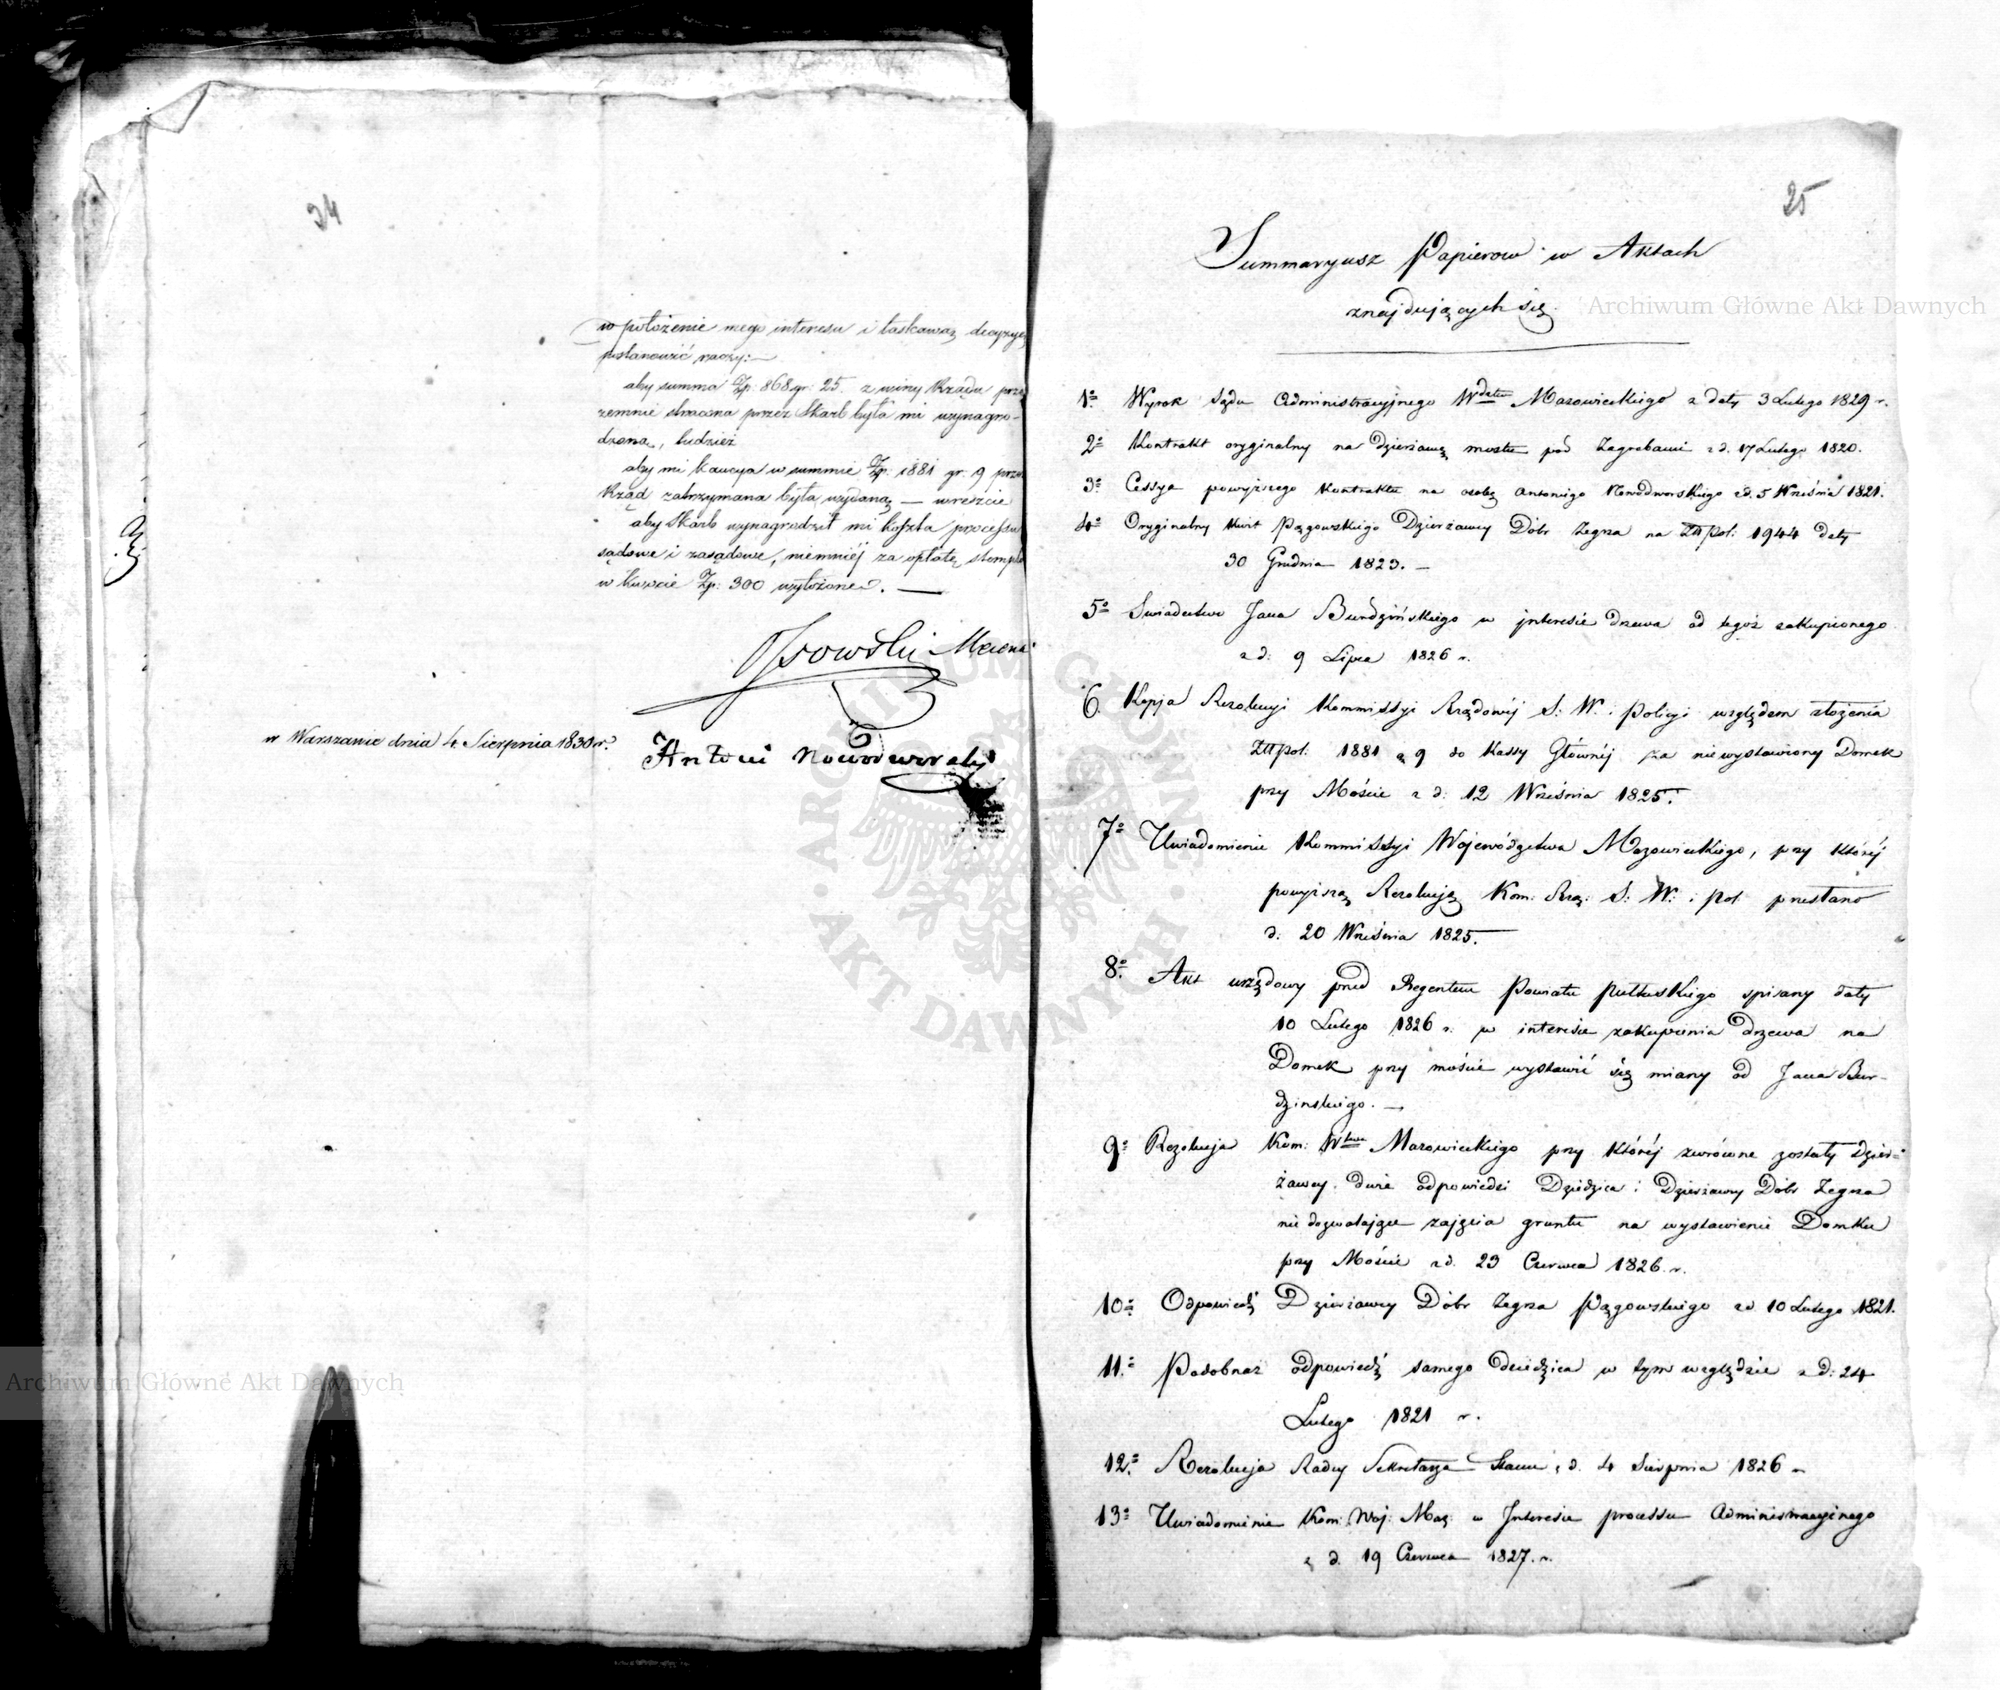 24
w położenie mego interesu i łaskawą decyzyę
postanowić raczy:—
aby summa Zp: 868 gr: 25. z winy Rządu prze
zemnie stracona przez Skarb była mi wynagro-
dzoną, tudzież
aby mi kaucya w summie Zp: 1881 gr. 9 przez
Rząd zatrzymana była wydaną — wreszcie
aby Skarb wynagrodził mi koszta processu
sądowe i zasądowe, niemniéj za opłatę stempla
w kwocie Zp: 300 wyłożone. —
Mecena
w Warszawie dnia 4 Sierpnia 1830 r.
Antoni Nowodworski
25
Summaryusz Papierow w Aktach
znajdujących się.
1o Wyrok Sądu Administracyjnego Wdztwa Mazowieckiego z daty 3 Lutego 1829 r.
2o Kontrakt oryginalny na dzierżawę mostu pod Zegrzem z d. 17 Lutego 1820.
3o Cessya powyższego kontraktu na osobę Antoniego Nowodworskiego z d. 5 Września 1821.
4o Oryginalny kwit Pągowskiego Dzierżawcy Dóbr Zegrza na Złłpol: 1944 daty
30 Grudnia 1823. —
5o Swiadectwo Jana Burdzińskiego w interesie drzewa od tegoż zakupionego
z d: 9 Lipca 1826 r.
6. Kopja Rezolucyi Kommissyi Rządowéj S: W: i Policyi względem złożenia
Złłpol: 1881 g 9 do Kassy Głównéj za niewystawiony Domek
przy Moście z d: 12 Września 1825.
7o Uwiadomienie Kommissyi Województwa Mazowieckiego, przy któréj
powyższą Rezolucyą Kom: Rzą: S: W: i Pol: przesłano
d: 20 Września 1825.
8o Akt urzędowy przed Regentem Powiatu Pułtuskiego spisany daty
10 Lutego 1826 r. w interesie zakupienia drzewa na
Domek przy moście wystawić się miany od Jana Bur-
dzinskiego. —
9o Rezolucja Kom: Wtwa Mazowieckiego przy któréj zwrócone zostały Dzier-
żawcy dwie odpowiedzi Dziedzica i Dzierżawcy Dóbr Zegrza
nie dozwalające zajęcia gruntu na wystawienie Domku
przy Moście z d. 23 Czerwca 1826. r.
10o Odpowiedź Dzierżawcy Dóbr Zegrza Pągowskiego z d 10 Lutego 1821.
11o Podobnaż odpowiedź samego dziedzica w tym względzie z d: 24
Lutego 1821 r.
12o Rezolucja Radcy Sekretarza Stanu z d. 4 Sierpnia 1826 r
13o Uwiadomienie Kom: Woj: Maz: w Interesie processu Administracyjnego
z d. 19 Czerwca 1827. r.
Archiwum Główne Akt Dawnych
Archiwum Główne Akt Dawnych
ARCHIWUM GŁÓWNE AKT DAWNYCH